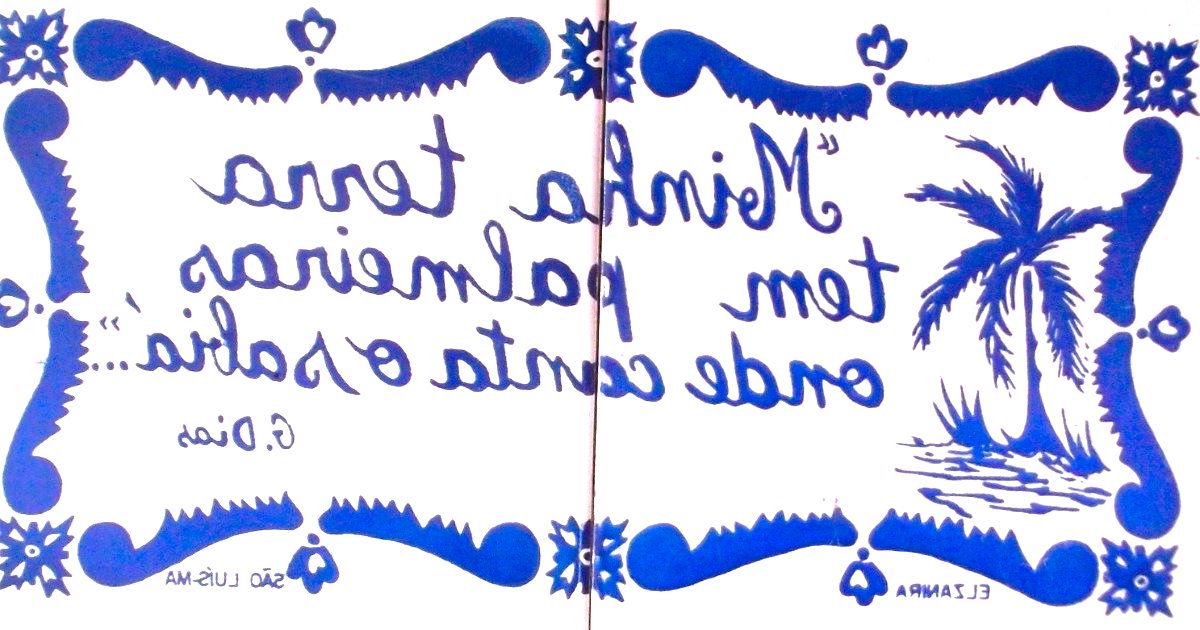 "Minha a terra
tem palmeiras
onde canta o sabiá..."
G. Dias
SÃO LUÍS-MA
ELZANIRA